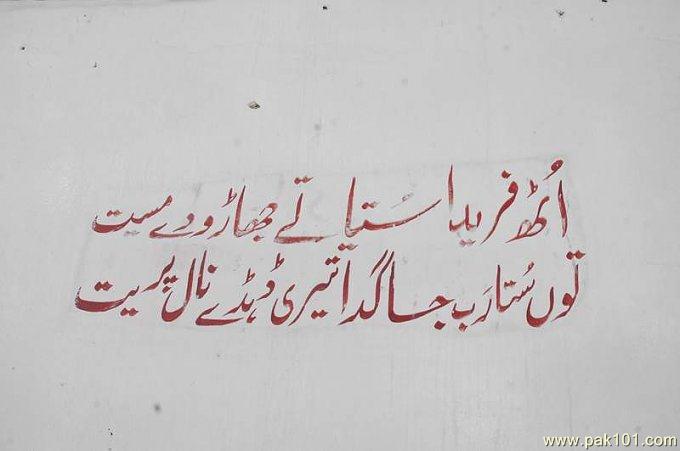 اُٹھ فریدا سُتیا تے جھاڑو دے مسیت
توں سُتا رَب جاگدا تیری ڈہڈے نال پریت
www.pak101.com